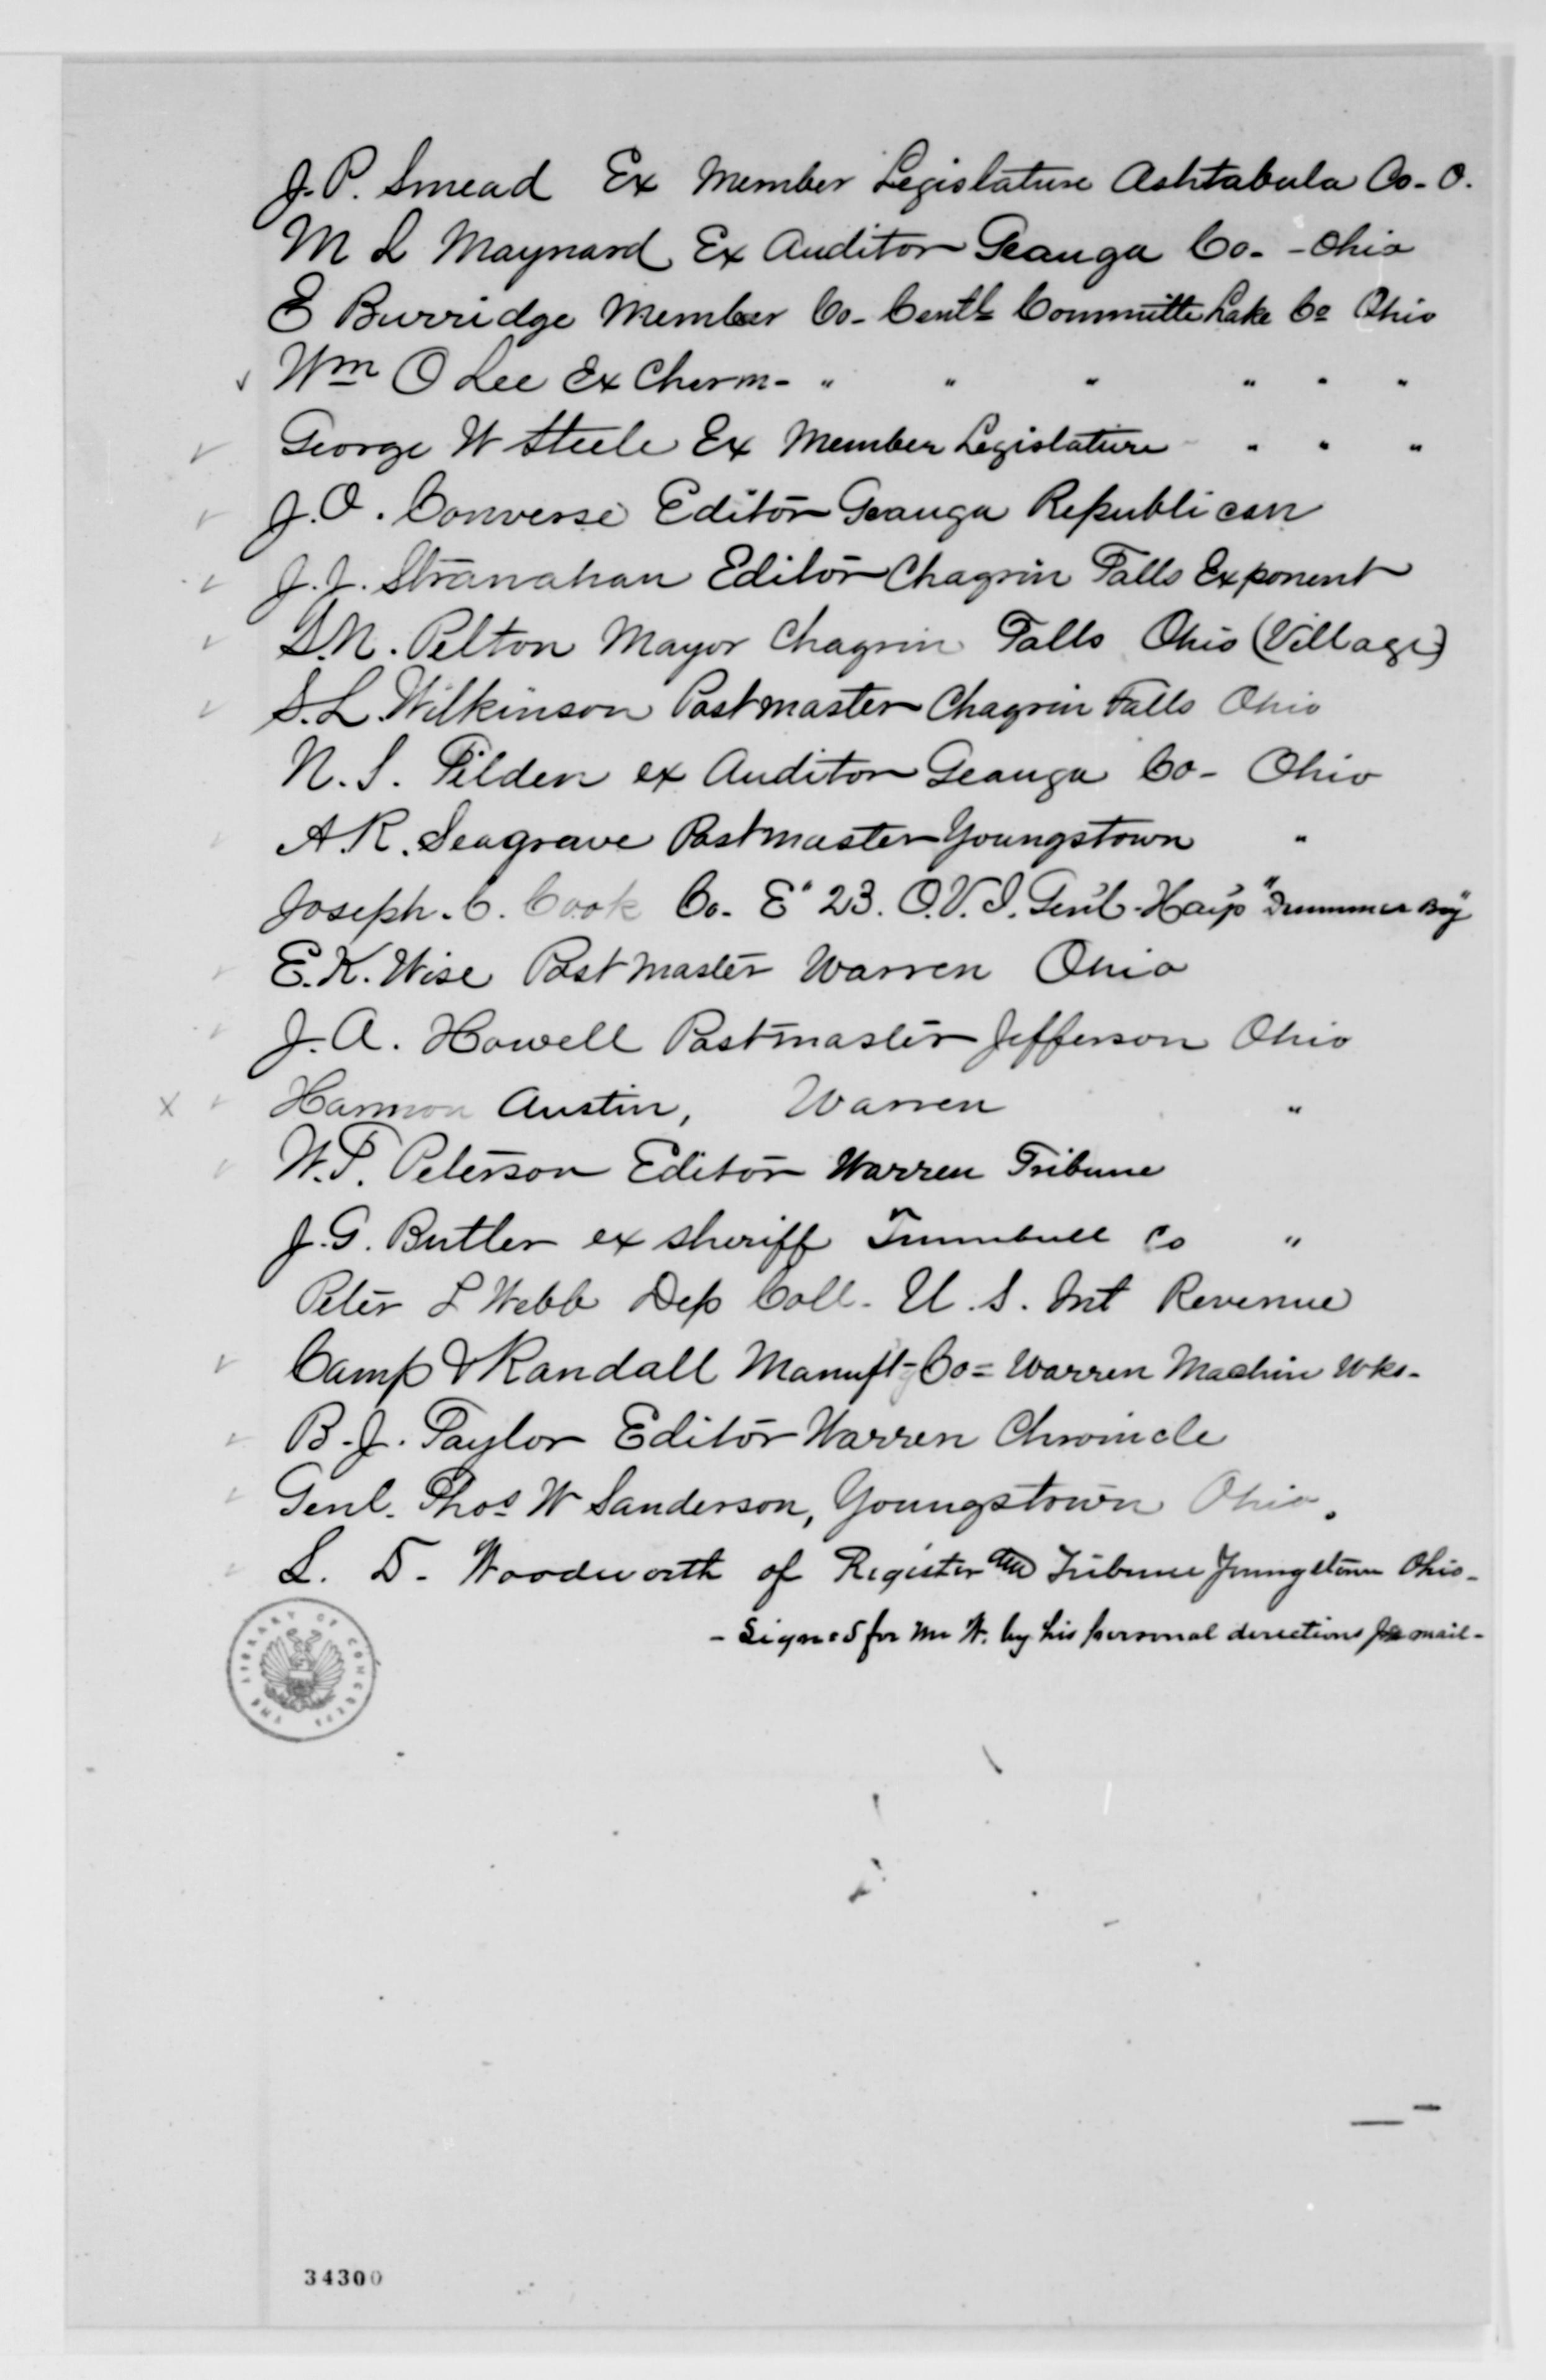 J. P. Smead Ex Member Legislature Ashtabula Co- O.
M L Maynard Ex Auditor Geauga Co- - Ohio
E Burridge Member Co- Centl Committe Lake Co Ohio
Wm O Lee Ex Charm- " " " " " "
George W Steele Ex Member Legislature " " "
J. O. Converse Editor Geauga Republican
J. J. Stranahan Editor Chagrin Falls Exponent
L. N. Pelton Mayor Chagrin Falls Ohio (Village)
S. L. Wilkinson Postmaster Chagrin Falls Ohio
N. S. Tilden ex Auditor Geauga Co- Ohio
A. R. Seagrave Postmaster Youngstown "
Joseph. C. Cook Co. E" 23. O. V. I. Gen'l- Hay's "Drummer Boy"
E. K. Wise Post Master Warren Ohio
J. A. Howell Postmaster Jefferson Ohio
x Harmon Austin, Warren "
W. T. Peterson Editor Warren Tribune
J. G. Butler ex sheriff Trumbull Co "
Peter L Webb Dep Coll- U. S. Int Revenue
Camp & Randall Manuft- Co= Warren Machin Wks-
B. J. Taylor Editor Warren Chronicle
Genl. Thos W Sanderson, Youngstown Ohio.
L. D. Woodworth of Register and Tribune Youngstown Ohio-
- Signed for Mr W. by his personal directions mail-
THE LIBRARY OF CONGRESS
34300